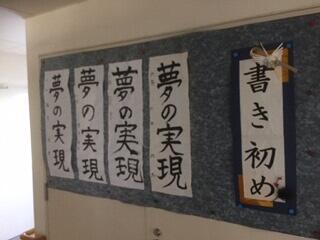 書き初め
夢の実現
夢の実現
夢の実現
夢の実現